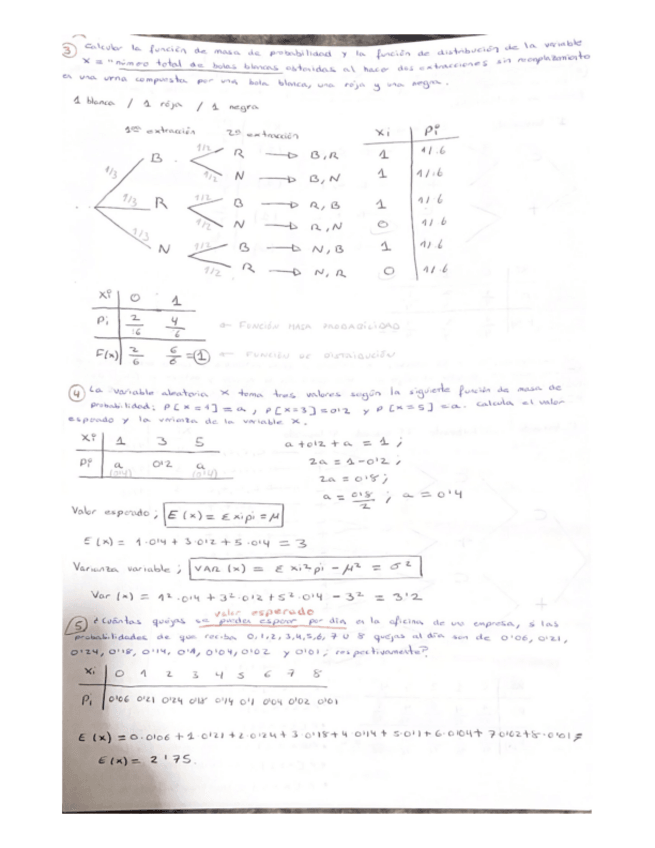 ③ Calcular la función de masa de probabilidad y la función de distribución de la variable
X = "número total de bolas blancas obtenidas al hacer dos extracciones sin reemplazamiento
en una urna compuesta por una bola blanca, una roja y una negra.
1 blanca / 1 roja / 1 negra
1º extracción 2º extracción Xi Pi
1/3 B 1/2 R → B,R 1 1/6
1/2 N → B,N 1 1/6
1/3 R 1/2 B → R,B 1 1/6
1/2 N → R,N 0 1/6
1/3 N 1/2 B → N,B 1 1/6
1/2 R → N,R 0 1/6
Xi 0 1
Pi 2/6 4/6 ← FUNCIÓN MASA PROBABILIDAD
F(x) 2/6 6/6 = ① ← FUNCIÓN DE DISTRIBUCIÓN
④ La variable aleatoria X toma tres valores según la siguiente función de masa de
probabilidad; P[X=1] = a, P[X=3] = 0'2 y P[X=5] = a. Calcula el valor
esperado y la varianza de la variable X.
Xi 1 3 5 a + 0'2 + a = 1 ;
Pi a 0'2 a 2a = 1 - 0'2 ;
(0'4) (0'4) 2a = 0'8 ;
a = 0'8/2 ; a = 0'4
Valor esperado ; E(x) = Σ xi pi = μ
E(x) = 1·0'4 + 3·0'2 + 5·0'4 = 3
Varianza variable ; VAR(x) = Σ xi² pi - μ² = σ²
Var(x) = 1²·0'4 + 3²·0'2 + 5²·0'4 - 3² = 3'2
valor esperado
⑤ ¿Cuántas quejas se pueden esperar por día en la oficina de una empresa, si las
probabilidades de que reciba 0,1,2,3,4,5,6,7 u 8 quejas al día son de 0'06, 0'21,
0'24, 0'18, 0'14, 0'1, 0'04, 0'02 y 0'01, respectivamente?
Xi 0 1 2 3 4 5 6 7 8
Pi 0'06 0'21 0'24 0'18 0'14 0'1 0'04 0'02 0'01
E(x) = 0·0'06 + 1·0'21 + 2·0'24 + 3·0'18 + 4·0'14 + 5·0'1 + 6·0'04 + 7·0'02 + 8·0'01 =
E(x) = 2'75.